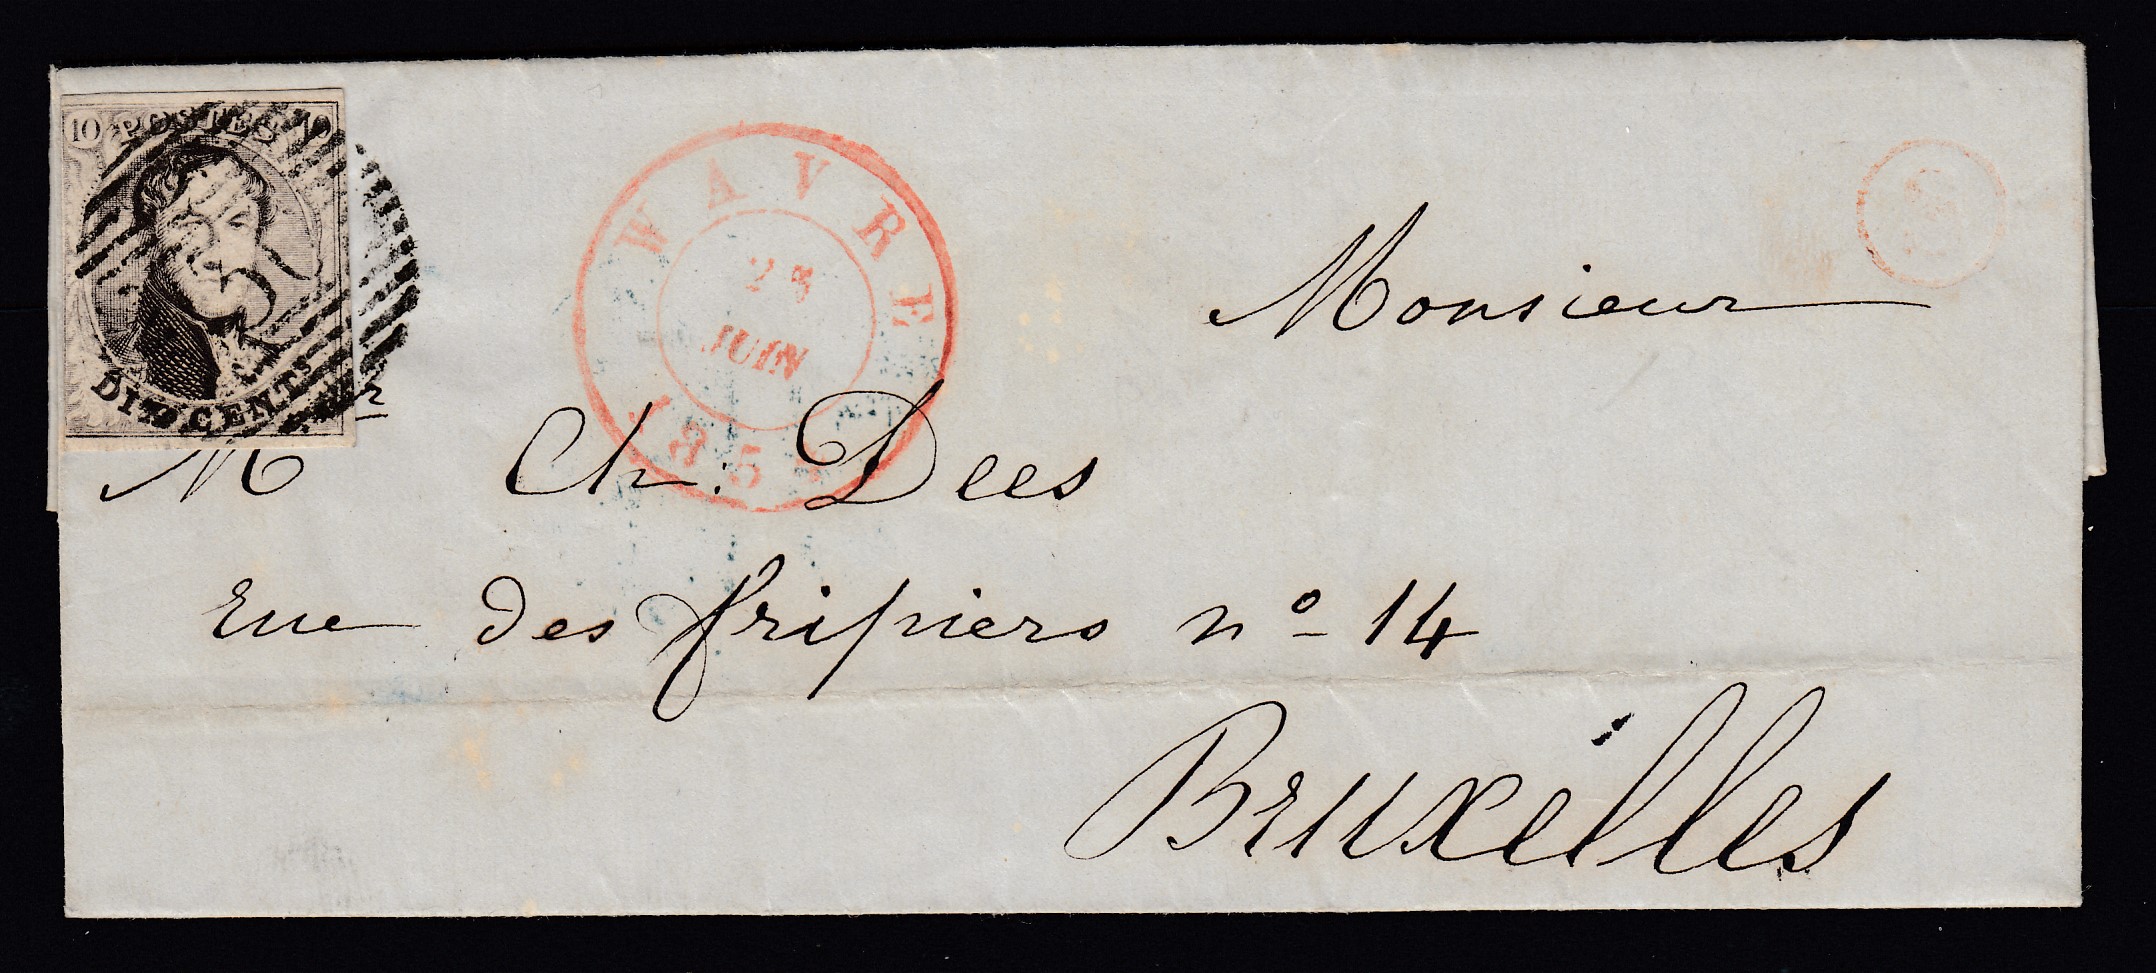 10 POSTES 10
DIX CENTS
WAVRE
23
JUIN
Monsieur
Mr Ch: Dees
Rue des fripiers nº 14
Bruxelles